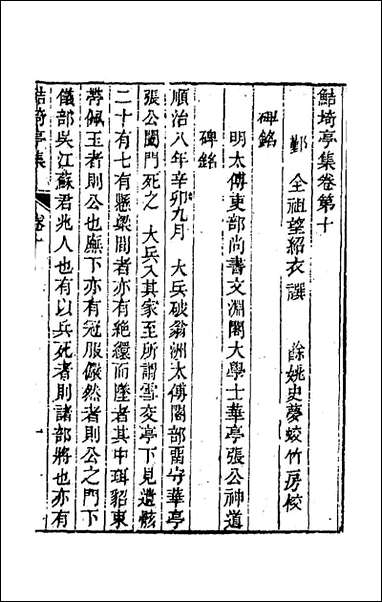 鮚埼亭集卷第十
鄞 全祖望紹衣譔 餘姚史夢蛟竹房校
碑銘
明太傅吏部尚書文淵閣大學士華亭張公神道
碑銘
順治八年辛卯九月 大兵破翁洲太傅閣部留守華亭
張公闔門死之 大兵入其家至所謂雪交亭下見遺骸
二十有七有懸梁閒者亦有絕繯而墜者其中珥貂束
帶佩玉者則公也廡下亦有冠服儼然者則公之門下
儀部吳江蘇君兆人也有以兵死者則諸部將也亦有
鮚埼亭集 卷十 一